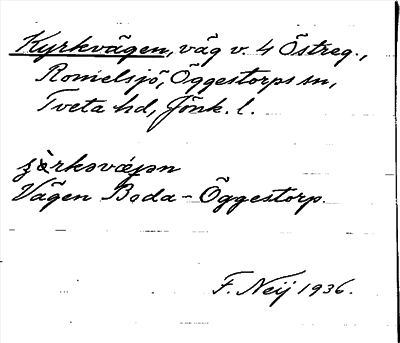 Kyrkvägen, väg v. 4 Östreg.,
Romelsjö, Öggestorps sn,
Tveta hd, Jönk. l.
Vägen Boda - Öggestorp.
F. Neij 1936.